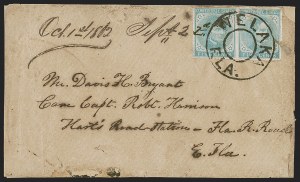 Oct. 1st 1863 Sept 2
WELAKA
FLA.
Mr. Davis H. Bryant
Care Capt. Robt. Harrison
Hart's Road Station - Fla. R. Road
E. Fla